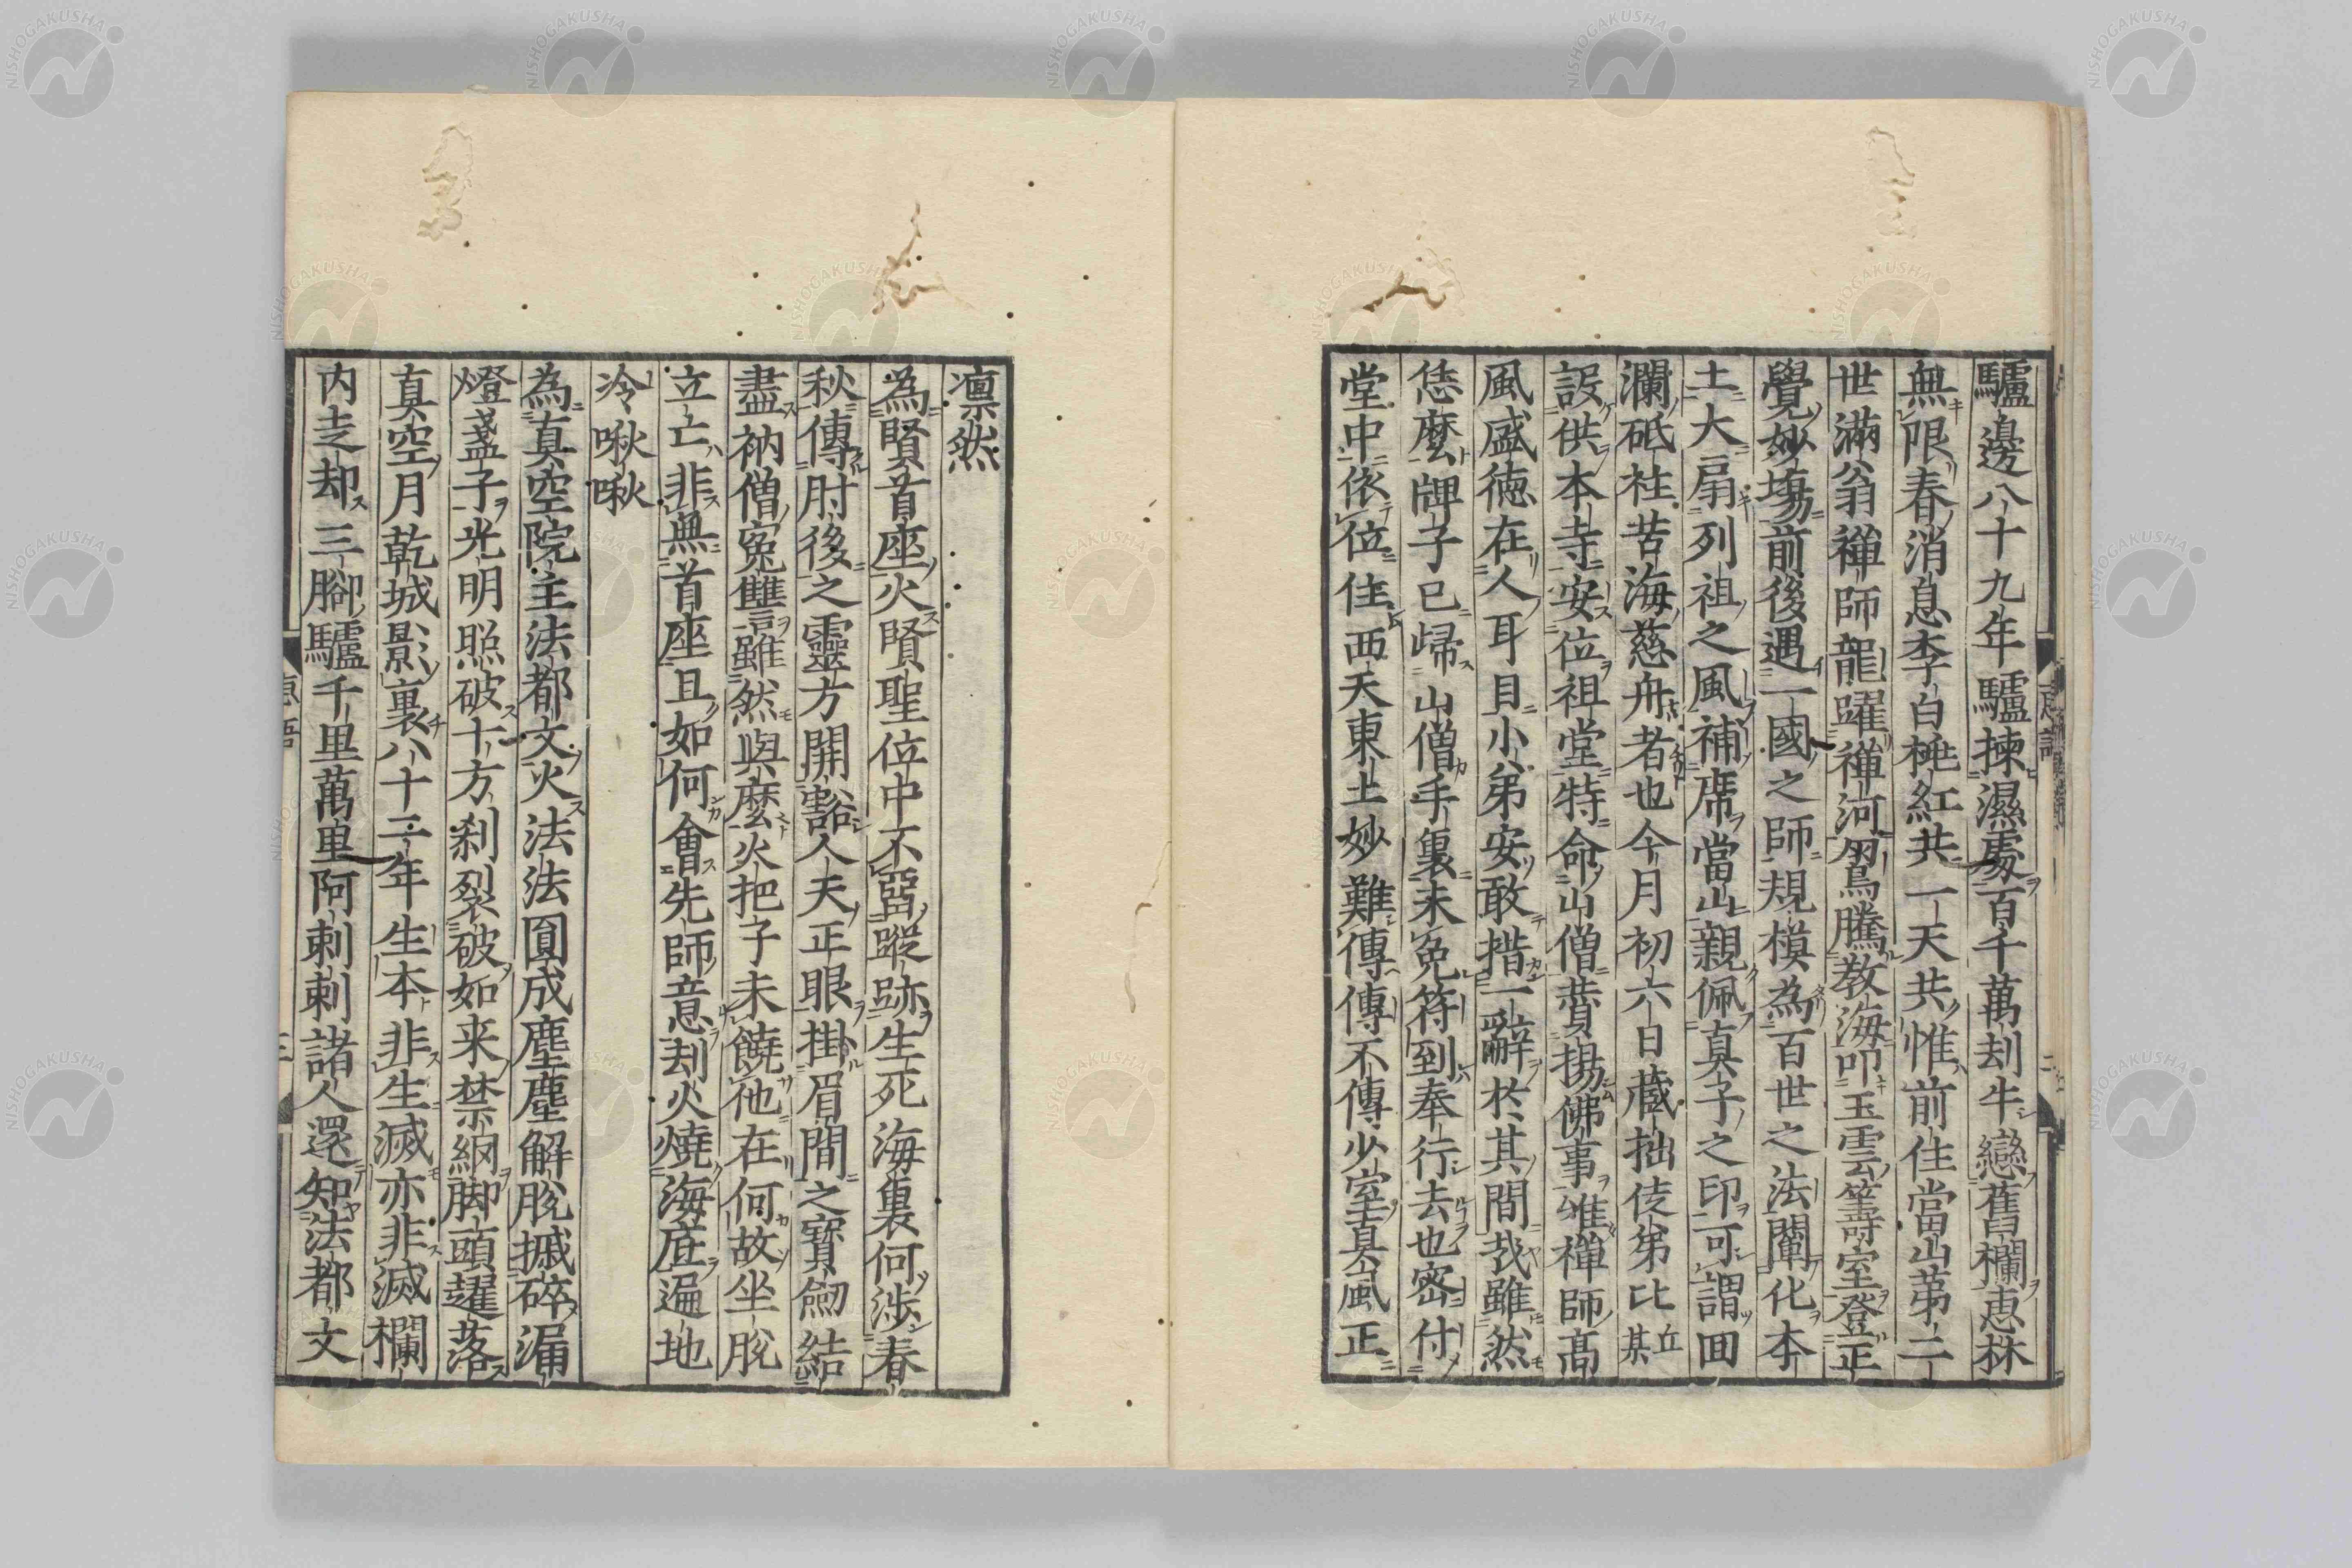 驢邊八十九年驢揀濕處百千萬刼牛戀舊欄恵林
無限春消息李白桃紅共一天共惟前住當山苐二
世滿翁禅師龍躍禅河鳥騰教海叩玉雲籌室登正
覺妙塲前後遇一國之師規模為百世之法闡化本
土大扇列祖之風補席當山親佩真子之印可謂回
瀾砥柱苦海慈舟者也今月初六日蔵拙徒苐比丘某
設供本寺安位祖堂特命山僧賛揚佛事惟禅師高
風盛徳在人耳目小弟安敢措一辭於其間㢤雖然
恁麼牌子已歸山僧手裏未免符到奉行去也密付
堂中依位住西天東土妙難傳傳不傳少室真風正
凛然
為賢首座火賢聖位中不畱蹤跡生死海裏何渉春
秋傳肘後之靈方開豁人天正眼掛眉間之寳劔結
盡衲僧寃讐雖然與麼火把子未饒他在何故坐脱
立亡非無首座且如何會先師意刼火燒海底遍地
冷啾啾
為真空院主法都文火法法圓成塵塵解脱搣碎漏
燈盞子光明照破十方刹裂破如来禁網脚頭趯落
真空月乾城影裏八十二年生本非生滅亦非滅欄
内走却三脚驢千里萬里阿剌剌諸人還知法都文